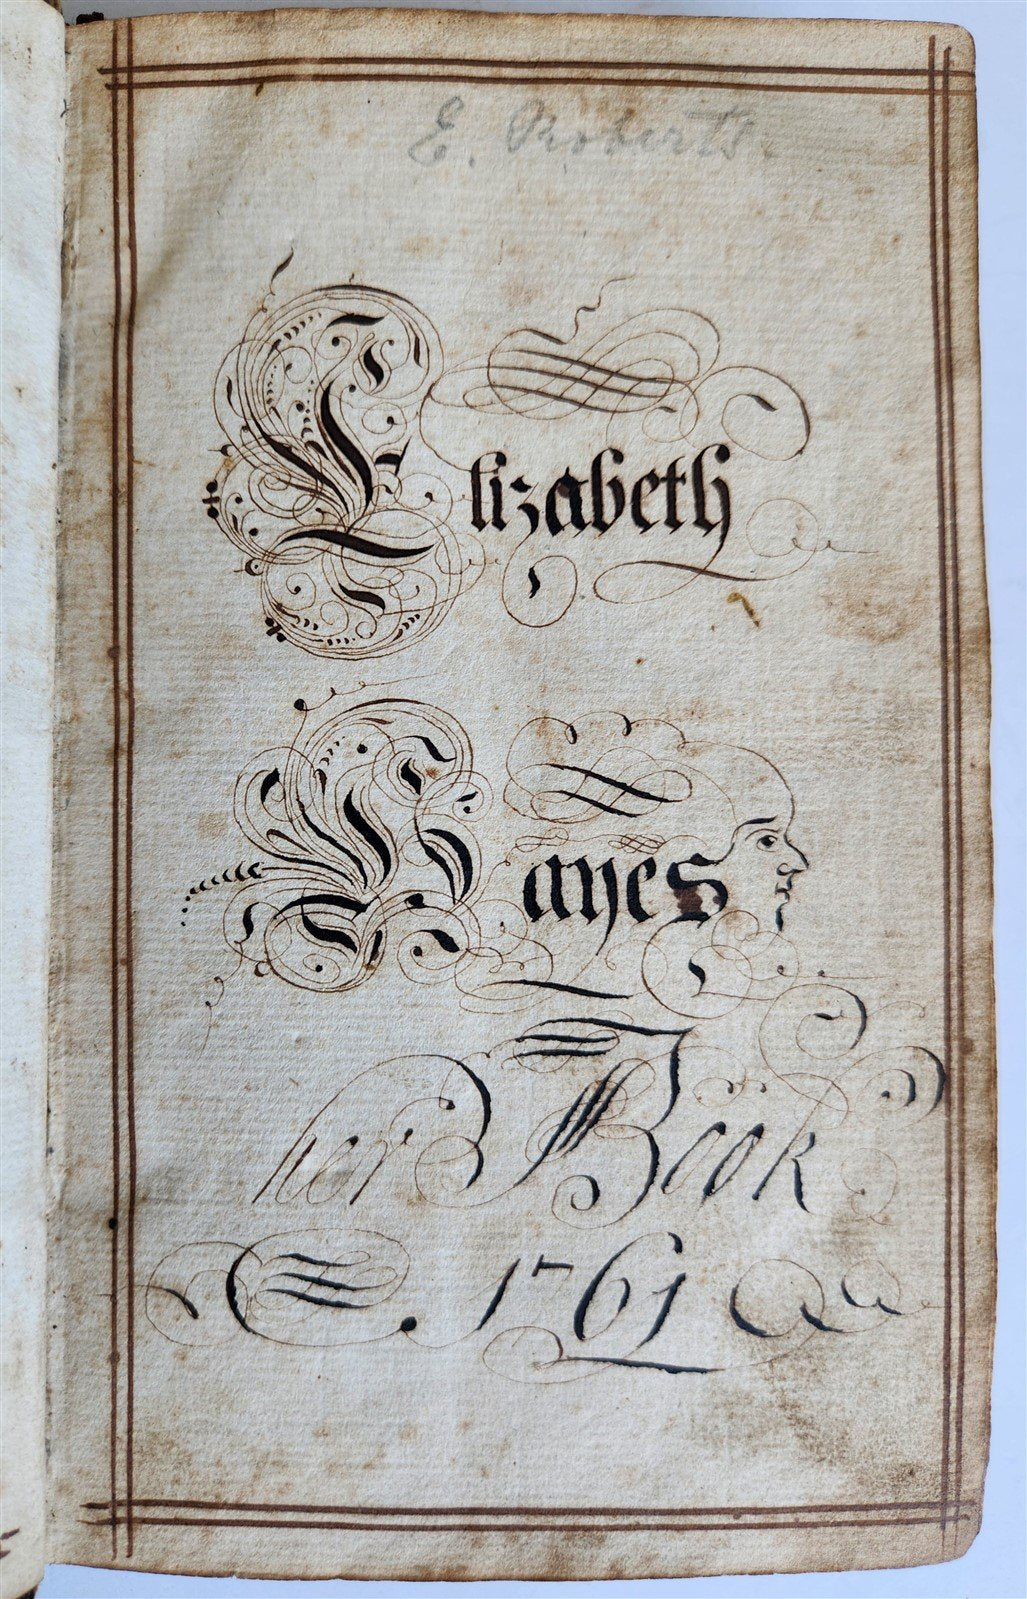 E. Roberts.
Elizabeth
Hayes
her Book
1761